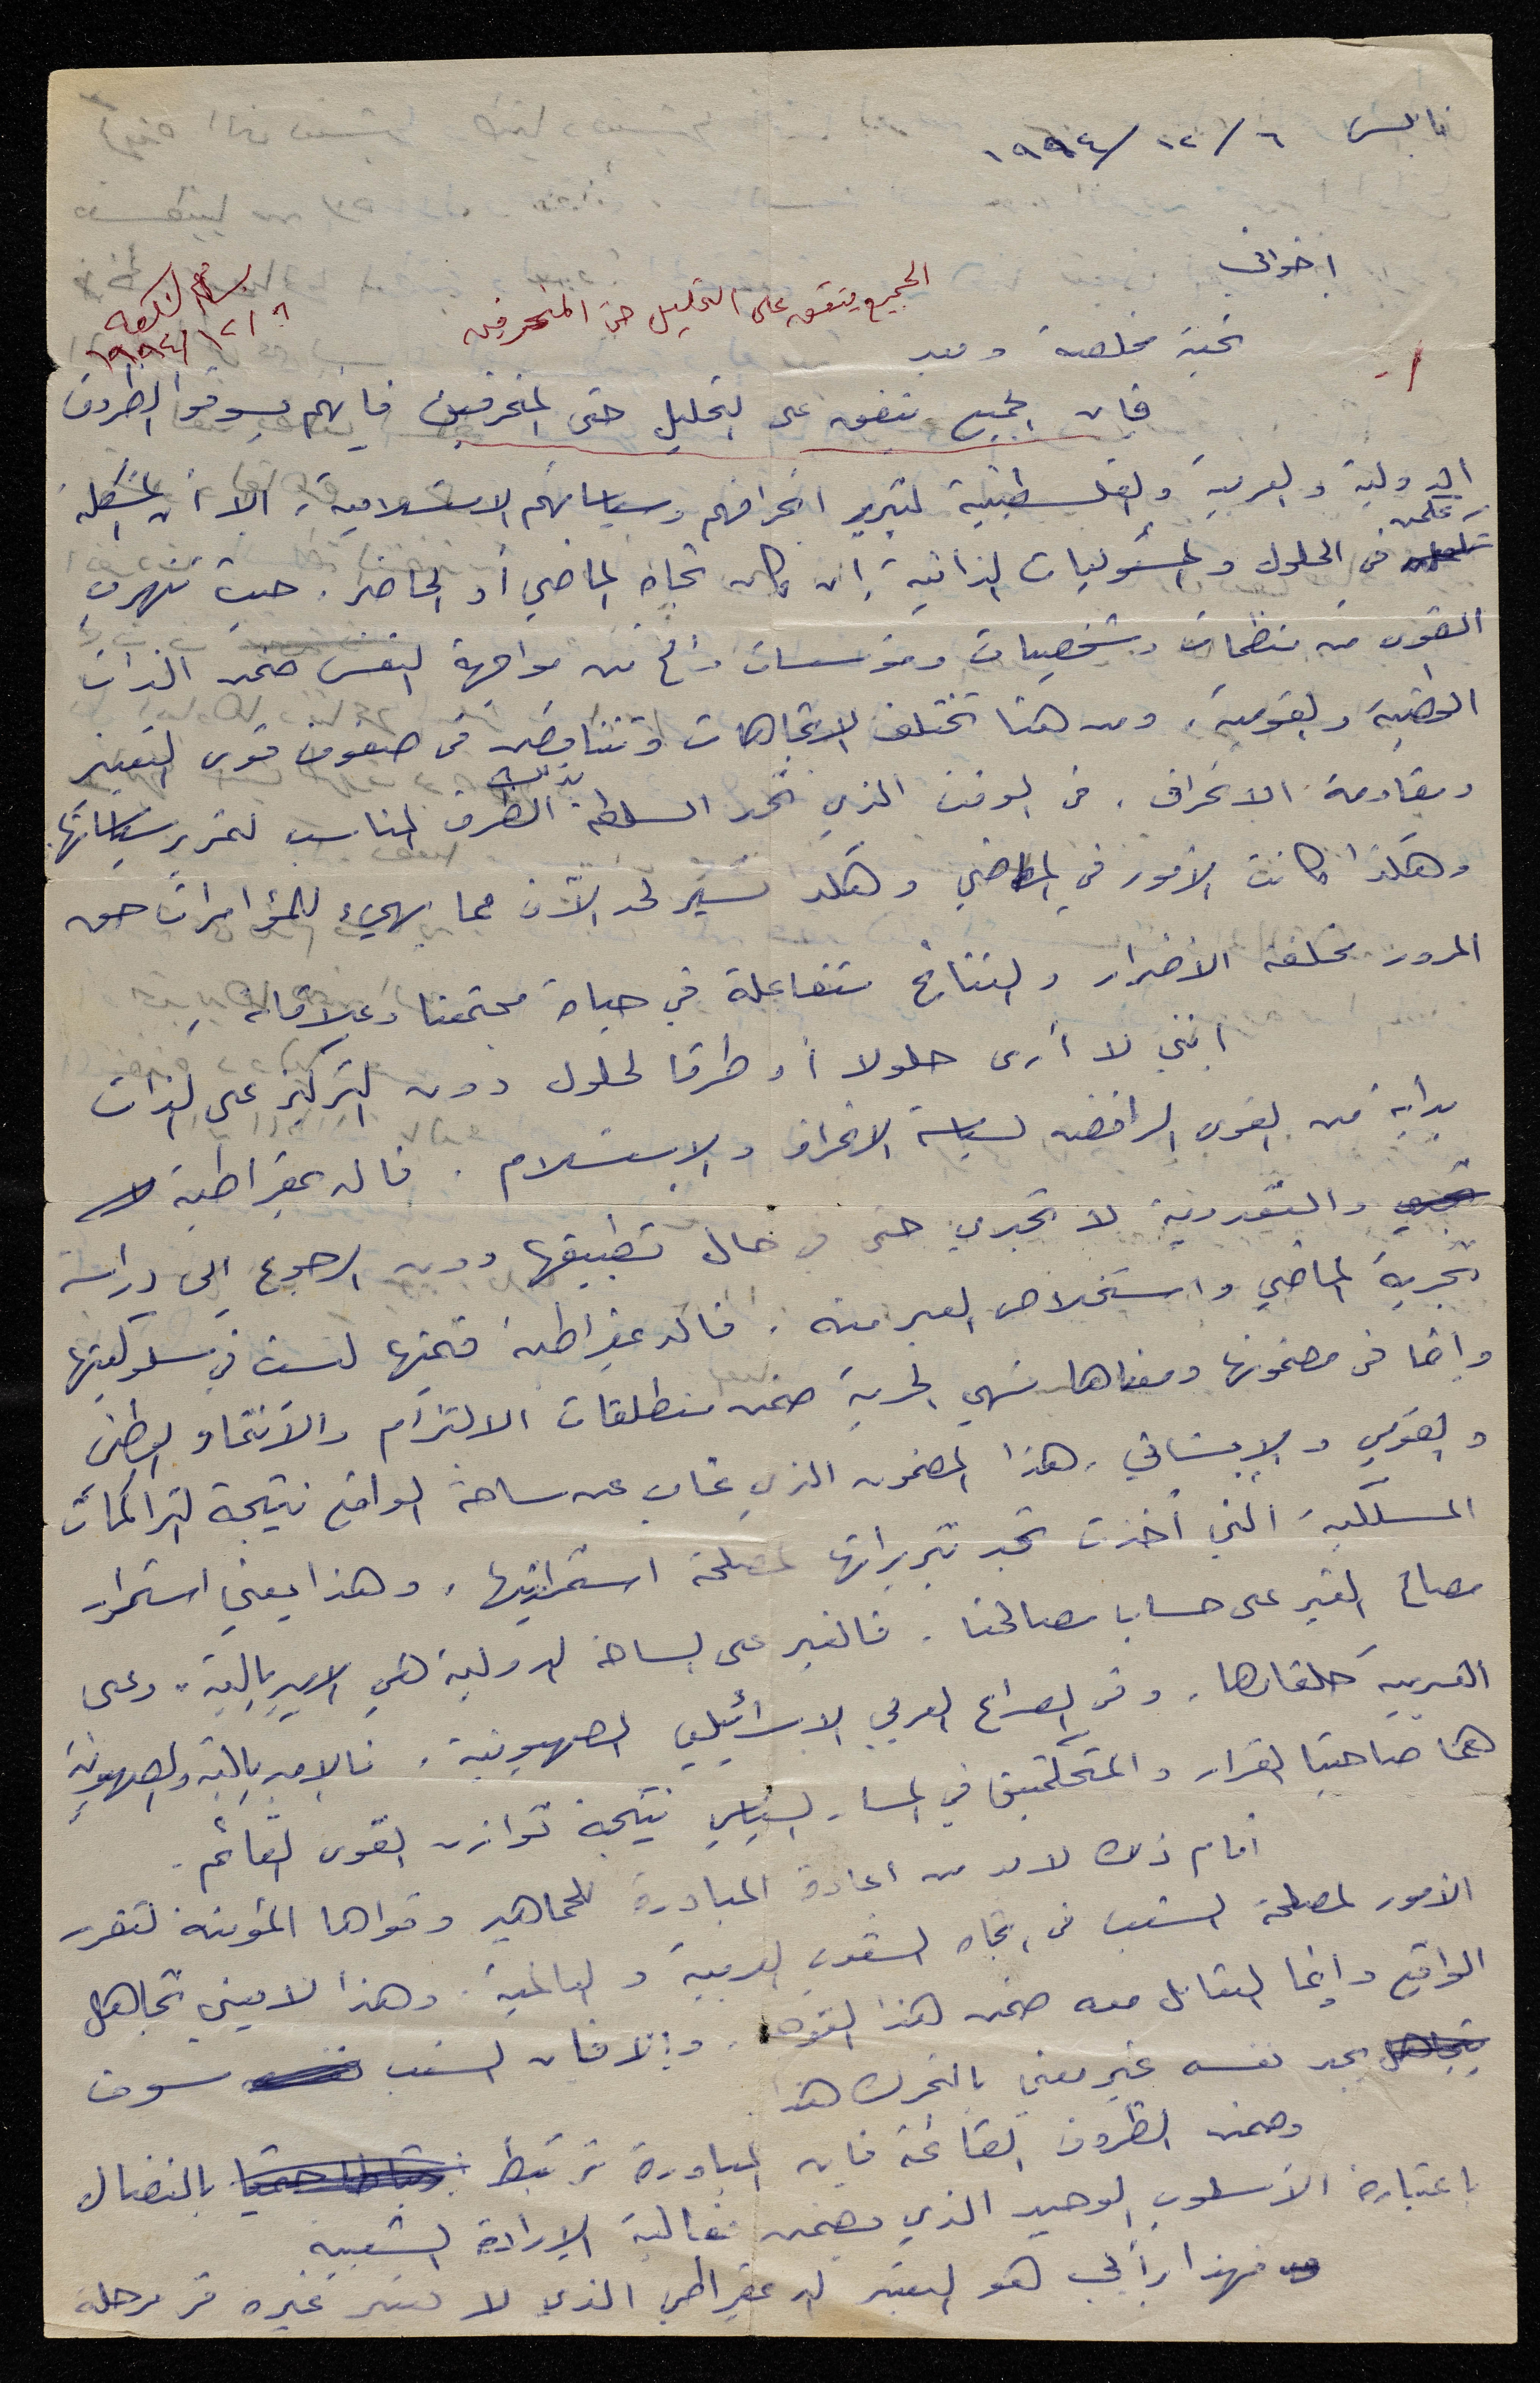 نابلس ٦/١٢/١٩٩٤
اخواني
الجميع يتفق على التحليل حتى المنحرفين
بسام الشكعة
٨/١٢/١٩٩٤
تحية مخلصة وبعد
١-
فان الجميع يتفق على التحليل حتى المنحرفين فانهم يسوقوا الظروف
الدولية والعربية والفلسطينية لتبرير انحرافهم وسياساتهم الاستسلامية، الا أن المشكلة
تكمن في الحلول والمسئوليات الذاتية إن كان تجاه الماضي أو الحاضر. حيث تتهرب
القوى من منظمات وشخصيات ومؤسسات من مواجهة النفس ضمن الذات
الوطنية والقومية، ومن هنا تختلف الاتجاهات وتتناقض في صفوف قوى التغيير
ومقاومة الانحراف، في الوقت الذي تجد السلطة بذلك الظرف المناسب لتمرير سياساتها.
وهكذا كانت الأمور في الماضي وهكذا تسير لحد الآن مما يهيء للمؤامرات حق
المرور مخلفة الأضرار والنتائج متفاعلة في حياة مجتمعنا وعلاقاته.
انني لا أرى حلولا أو طرقا لحلول دون التركيز على الذات
بداية من القوى الرافضة لسياسة الانحراف والاستسلام. فالديمقراطية
والتعددية لا تجدي حتى في حال تطبيقها دون الرجوع إلى دراسة
تجربة الماضي واستخلاص العبر منه. فالديمقراطية قيمتها ليست في سلوكيتها
وإنما في مضمونها ومعناها فهي الحرية ضمن منطلقات الالتزام والانتماء الوطني
والقومي والإنساني، هذا المضمون الذي غاب عن ساحة الواقع نتيجة التراكمات
المسلكية التي أخذت تجد تبريراتها لمصلحة استمراريتها، وهذا يعني استمرار
مصالح الغير على حساب مصالحنا. فالغير على الساحة الدولية هي الامبريالية، وعلى
العربية حلفاءها، وفي الصراع العربي الاسرائيلي الصهيونية، فالامبريالية والصهيونية
هما صاحبتا القرار والمتحكمتين في المسار السياسي نتيجة توازن القوى القائم.
أمام ذلك لابد من اعادة المبادرة للجماهير وقواها المؤمنة لتقرر
الأمور لمصلحة الشعب في اتجاه الشعوب العربية والعالمية، وهذا لا يعني تجاهل
الواقع وإنما التعامل معه ضمن هذا التوجه، وإلا فان الشعب سوف
يجد نفسه غير معني بالتحرك هذا.
وضمن الظروف القائمة فان المبادرة ترتبط بالنضال
باعتباره الأسلوب الوحيد الذي يضمن فعالية الإرادة الشعبية
فهذا برأيي هو التعبير الديمقراطي الذي لا تعبير غيره في مرحلة